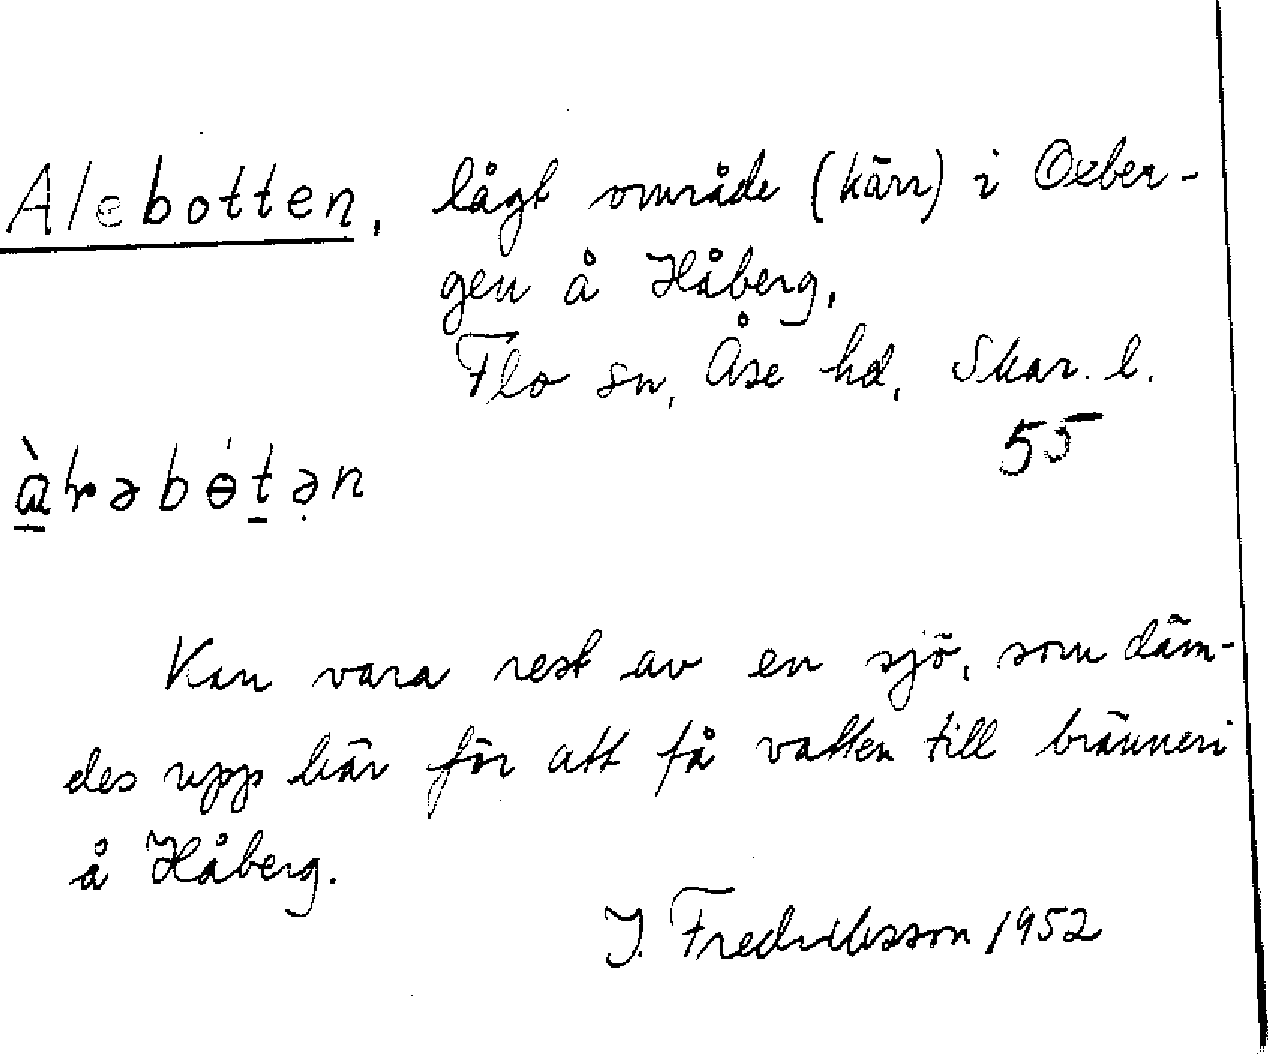 Alebotten, lågt område (kärr) i Oxber-
gen å Håberg,
Flo sn, Åse hd, Skar. l.
55
Kan vara rest av en sjö, som däm-
des upp här för att få vatten till bränneri
å Håberg.
J. Fredriksson 1952